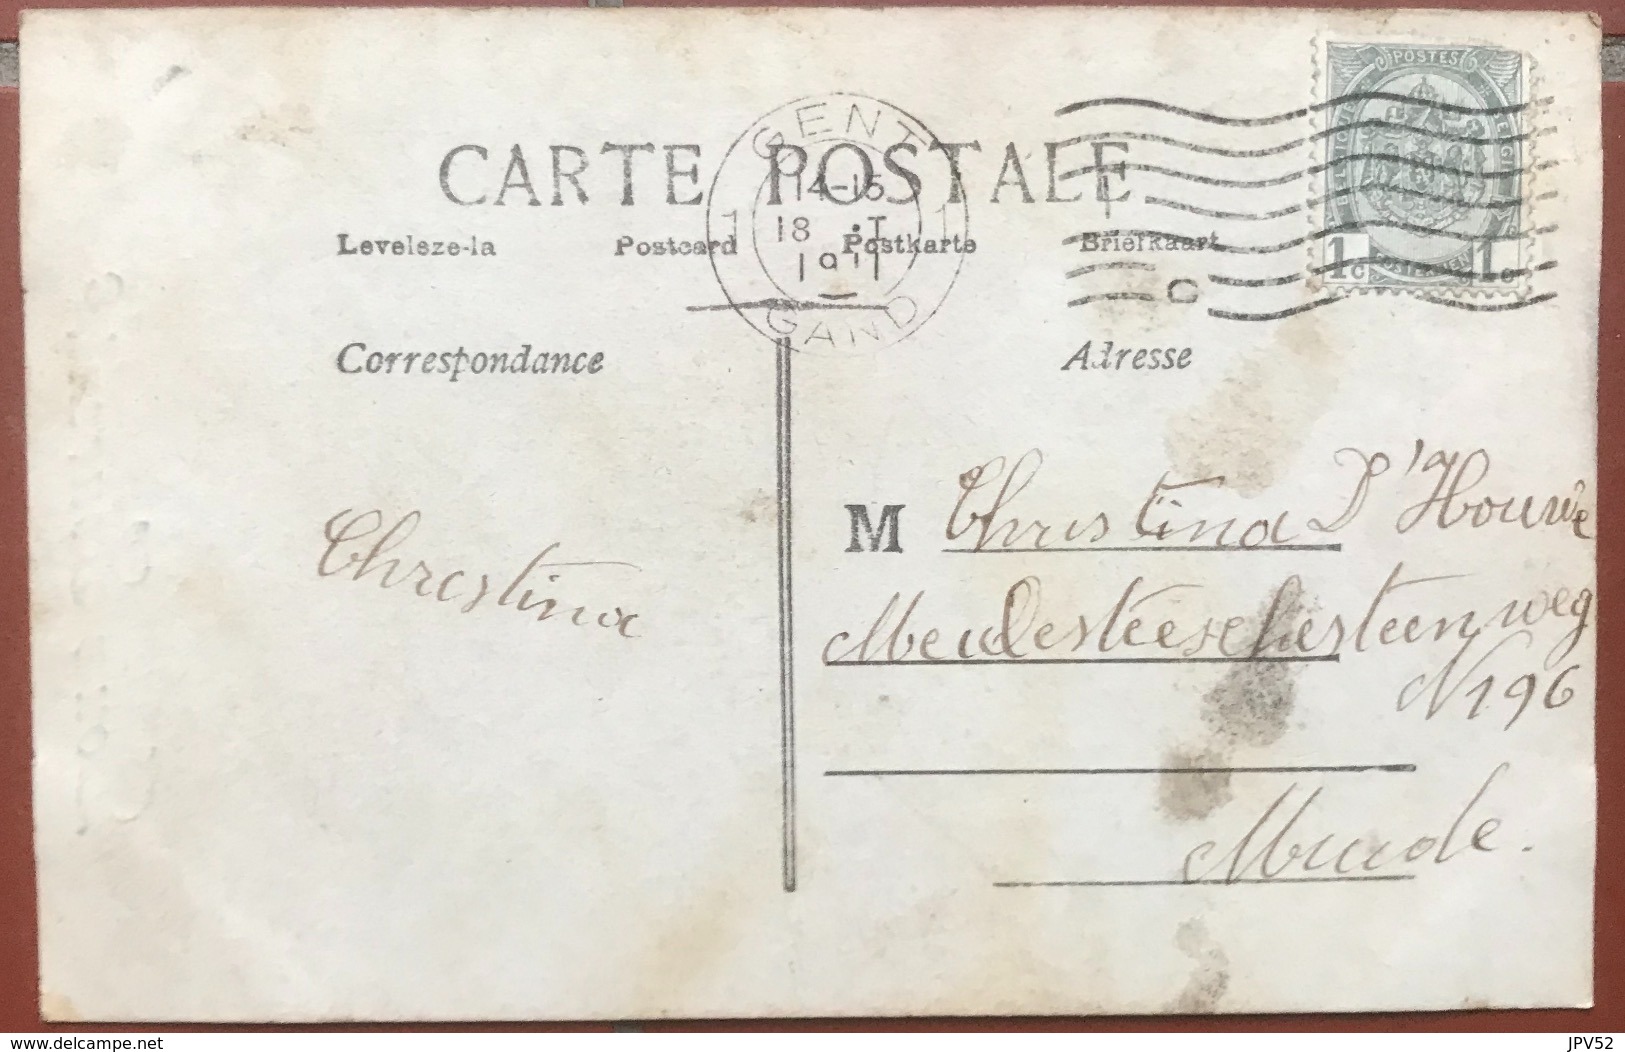 POSTES
1c 1c
GENT
CARTE POSTALE
14-15
1 18 1
1911
Leveleze-la Postcard Postkarte Briefkaart
GAND
Correspondance Adresse
M Christina D'Houwe
Meulesteeschesteenweg
N 196
Muide.
Chrestina
www.delcampe.net JPV52